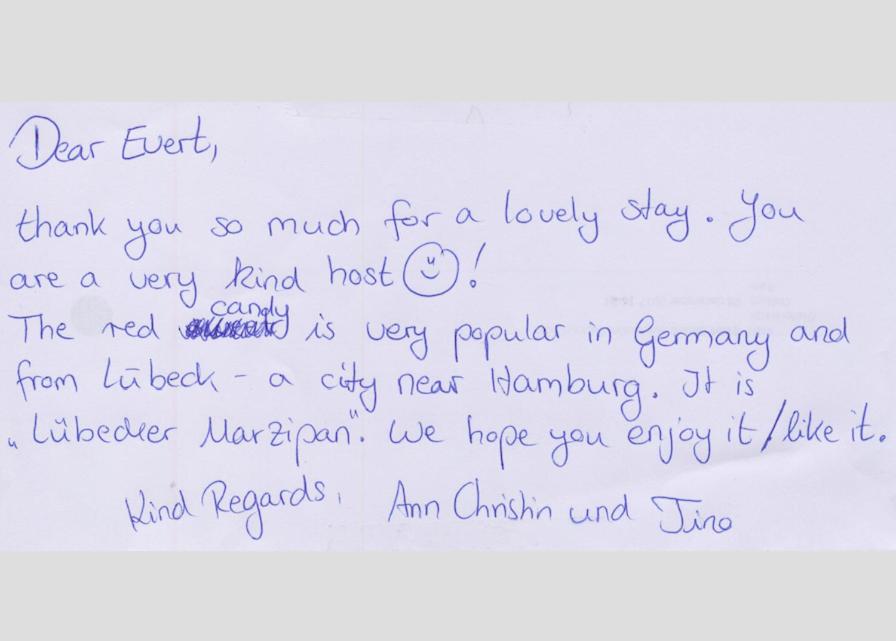 Dear Evert,
thank you so much for a lovely stay. You
are a very kind host ☺!
candy
The red is very popular in Germany and
from Lübeck - a city near Hamburg. It is
„Lübecker Marzipan". We hope you enjoy it/like it.
Kind Regards, Ann Christin und Tino